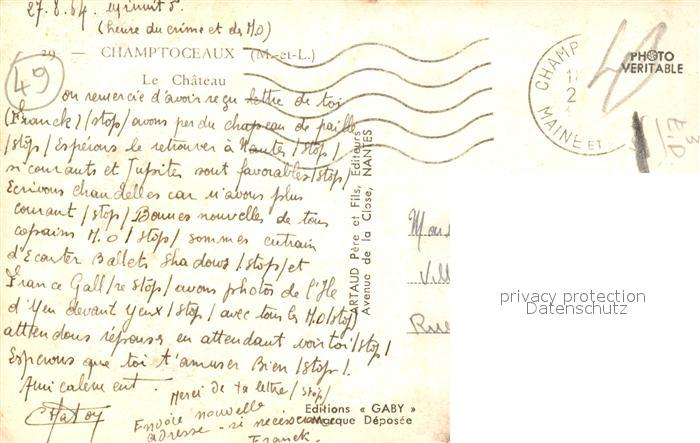 27.8.64. minuit 5
(heure du crime et des M.O)
29 — CHAMPTOCEAUX (M.-et-L.)
Le Château
49
on remercie d'avoir reçu lettre de toi
(Franck) /stop/ avons perdu chapeau de paille
/stop/ Espérons le retrouver à Nantes /stop/
si courants et Jupiter sont favorables /stop/
Ecrivons chandelles car n'avons plus
courant /stop/ Bonnes nouvelles de tous
copains M.O /stop/ sommes entrain
d'Ecouter Ballets Shadows /stop/ et
France Gall /re stop/ avons photos de l'Ile
d'Yeu devant yeux /stop/ avec tous les M.O /stop/
attendons réponse en attendant voir toi /stop/
Espérons que toi t'amuser Bien /stop/.
Amicalement.
Merci de ta lettre /stop/
Envoie nouvelle
adresse - si nécessaire
Franck.
ARTAUD Père et Fils, Editeurs
Avenue de la Close, NANTES
Editions « GABY »
Marque Déposée
CHAMP
MAINE ET
PHOTO
VERITABLE
Vill
Rue
privacy protection
Datenschutz